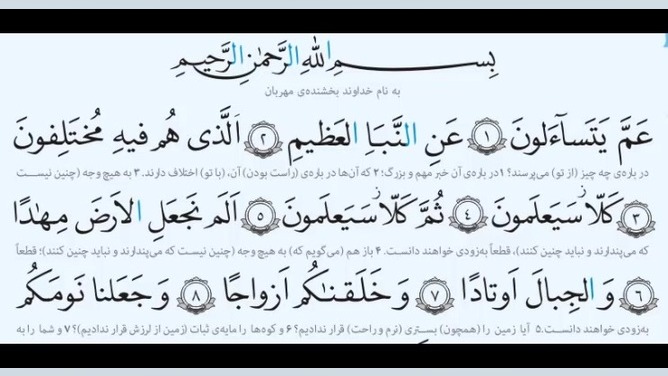 بِسمِ اللهِ الرَّحمٰنِ الرَّحیمِ
به نام خداوند بخشنده‌ی مهربان
عَمَّ يَتَساءَلونَ ﴿۱﴾ عَنِ النَّبَاِ العَظيمِ ﴿۲﴾ اَلَّذى هُم فيهِ مُختَلِفونَ
در باره‌ی چه چیز (از تو) می‌پرسند؟ ۱ در باره‌ی آن خبر مهم و بزرگ؛ ۲ که آن‌ها در باره‌ی (راست بودن) آن، (با تو) اختلاف دارند. ۳ به هیچ وجه (چنین نیست
﴿۳﴾ كَلّا سَيَعلَمونَ ﴿۴﴾ ثُمَّ كَلّا سَيَعلَمونَ ﴿۵﴾ اَلَم نَجعَلِ الاَرضَ مِهٰدًا
که می‌پندارند و نباید چنین کنند)، قطعاً به‌زودی خواهند دانست. ۴ باز هم (می‌گویم که) به هیچ وجه (چنین نیست که می‌پندارند و نباید چنین کنند)؛ قطعاً
﴿۶﴾ وَ الجِبالَ اَوتادًا ﴿۷﴾ وَ خَلَقنٰكُم اَزواجًا ﴿۸﴾ وَ جَعَلنا نَومَكُم
به‌زودی خواهند دانست. ۵ آیا زمین را (همچون) بستری (نرم و راحت) قرار ندادیم؟ ۶ و کوه‌ها را مایه‌ی ثبات (زمین از لرزش قرار ندادیم)؟ ۷ و شما را به